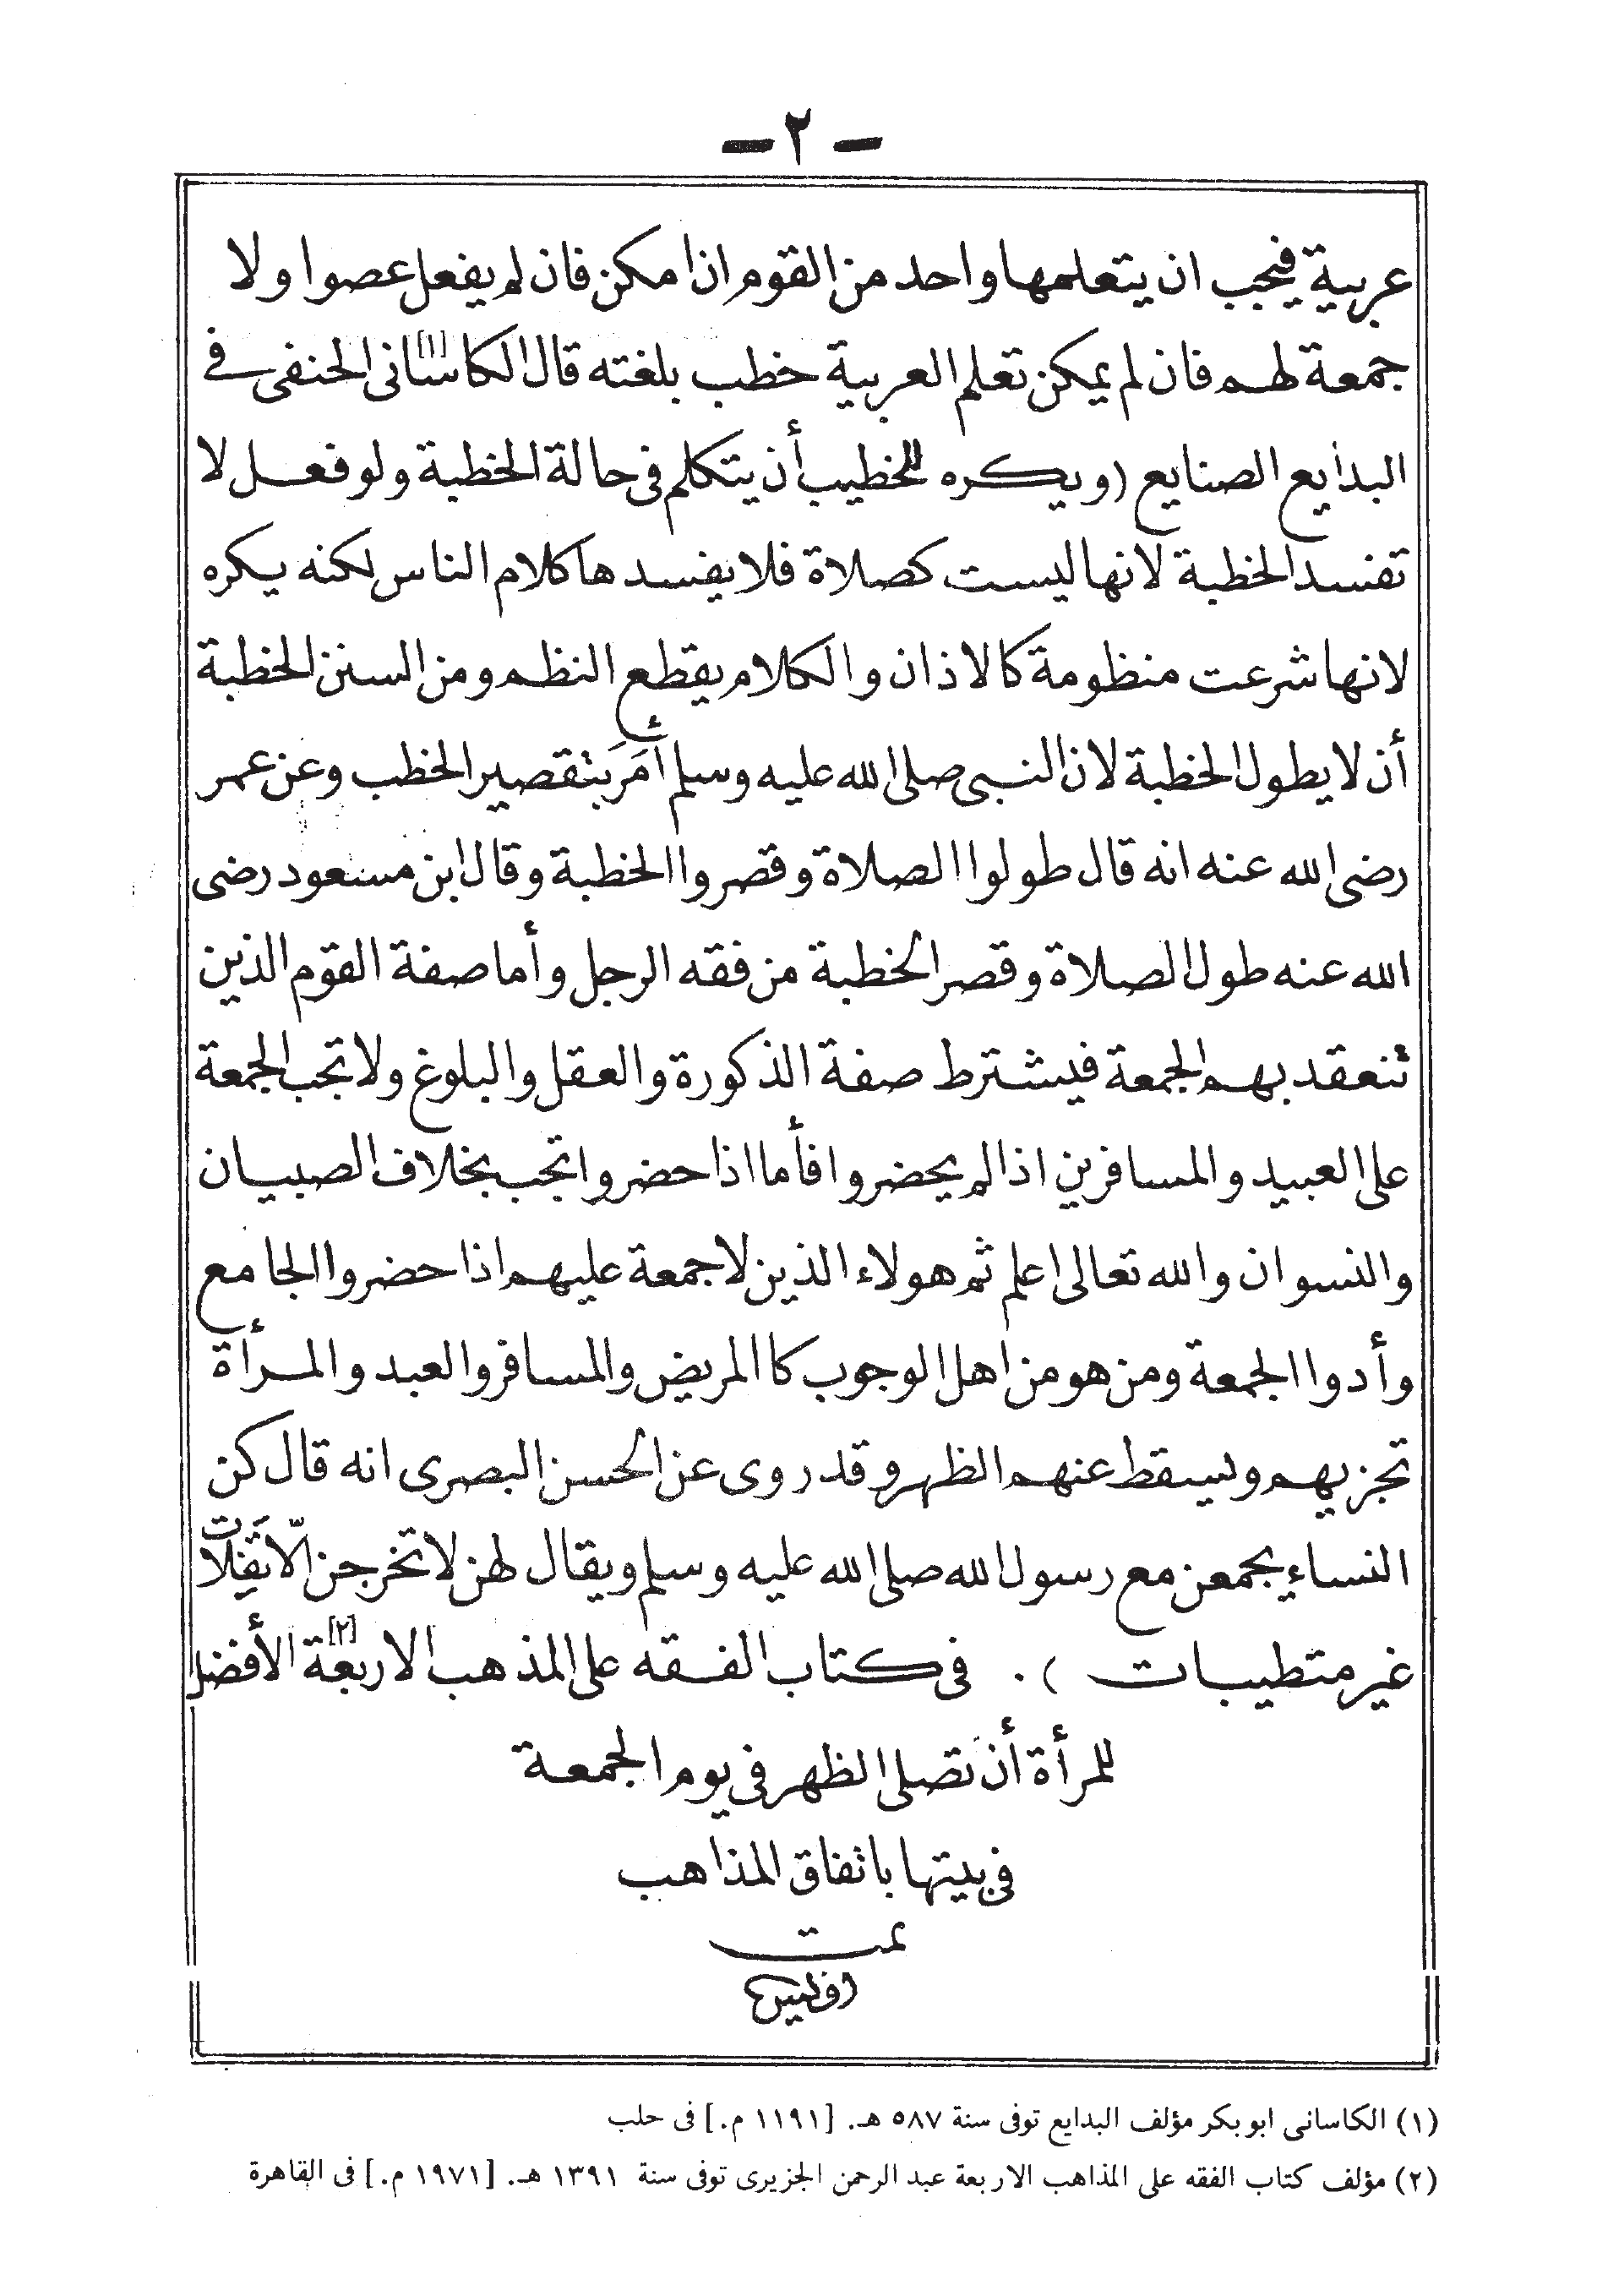 – ٢ –
عربية فيجب ان يتعلمها واحد من القوم ان امكن فان لم يفعل عصوا ولا
جمعة لهم فان لم يمكن تعلم العربية خطب بلغته قال الكاسانى[١] الحنفى فى
البدايع الصنايع (ويكره للخطيب أن يتكلم فى حالة الخطبة ولو فعل لا
تفسد الخطبة لانها ليست كصلاة فلا يفسدها كلام الناس لكنه يكره
لانها شرعت منظومة كالاذان والكلام يقطع النظم ومن السنن الخطبة
أن لا يطول الخطبة لان النبى صلى الله عليه وسلم أَمَرَ بتقصير الخطب وعن عمر
رضى الله عنه انه قال طولوا الصلاة وقصروا الخطبة وقال ابن مسعود رضى
الله عنه طول الصلاة وقصر الخطبة من فقه الرجل وأما صفة القوم الذين
تنعقد بهم الجمعة فيشترط صفة الذكورة والعقل والبلوغ ولا تجب الجمعة
على العبيد والمسافرين اذا لم يحضروا فأما اذا حضروا تجب بخلاف الصبيان
والنسوان والله تعالى اعلم ثم هولاء الذين لا جمعة عليهم اذا حضروا الجامع
وأدوا الجمعة ومن هو من اهل الوجوب كا المريض والمسافر والعبد والمرأة
تجزيهم ويسقط عنهم الظهر وقد روى عن الحسن البصرى انه قال كن
النساء يجمعن مع رسول الله صلى الله عليه وسلم ويقال لهن لا تخرجن الّا تَفِلات
غير متطيبات ). فى كتاب الفقه على المذهب الاربعة[٢] الأفضل
للمرأة أن تصلى الظهر فى يوم الجمعة
فى بيتها باتفاق المذاهب
تمت
(١) الكاسانى ابو بكر مؤلف البدايع توفى سنة ٥٨٧ هـ. [١١٩١ م.] فى حلب
(٢) مؤلف كتاب الفقه على المذاهب الاربعة عبد الرحمن الجزيرى توفى سنة ١٣٩١ هـ. [١٩٧١ م.] فى القاهرة